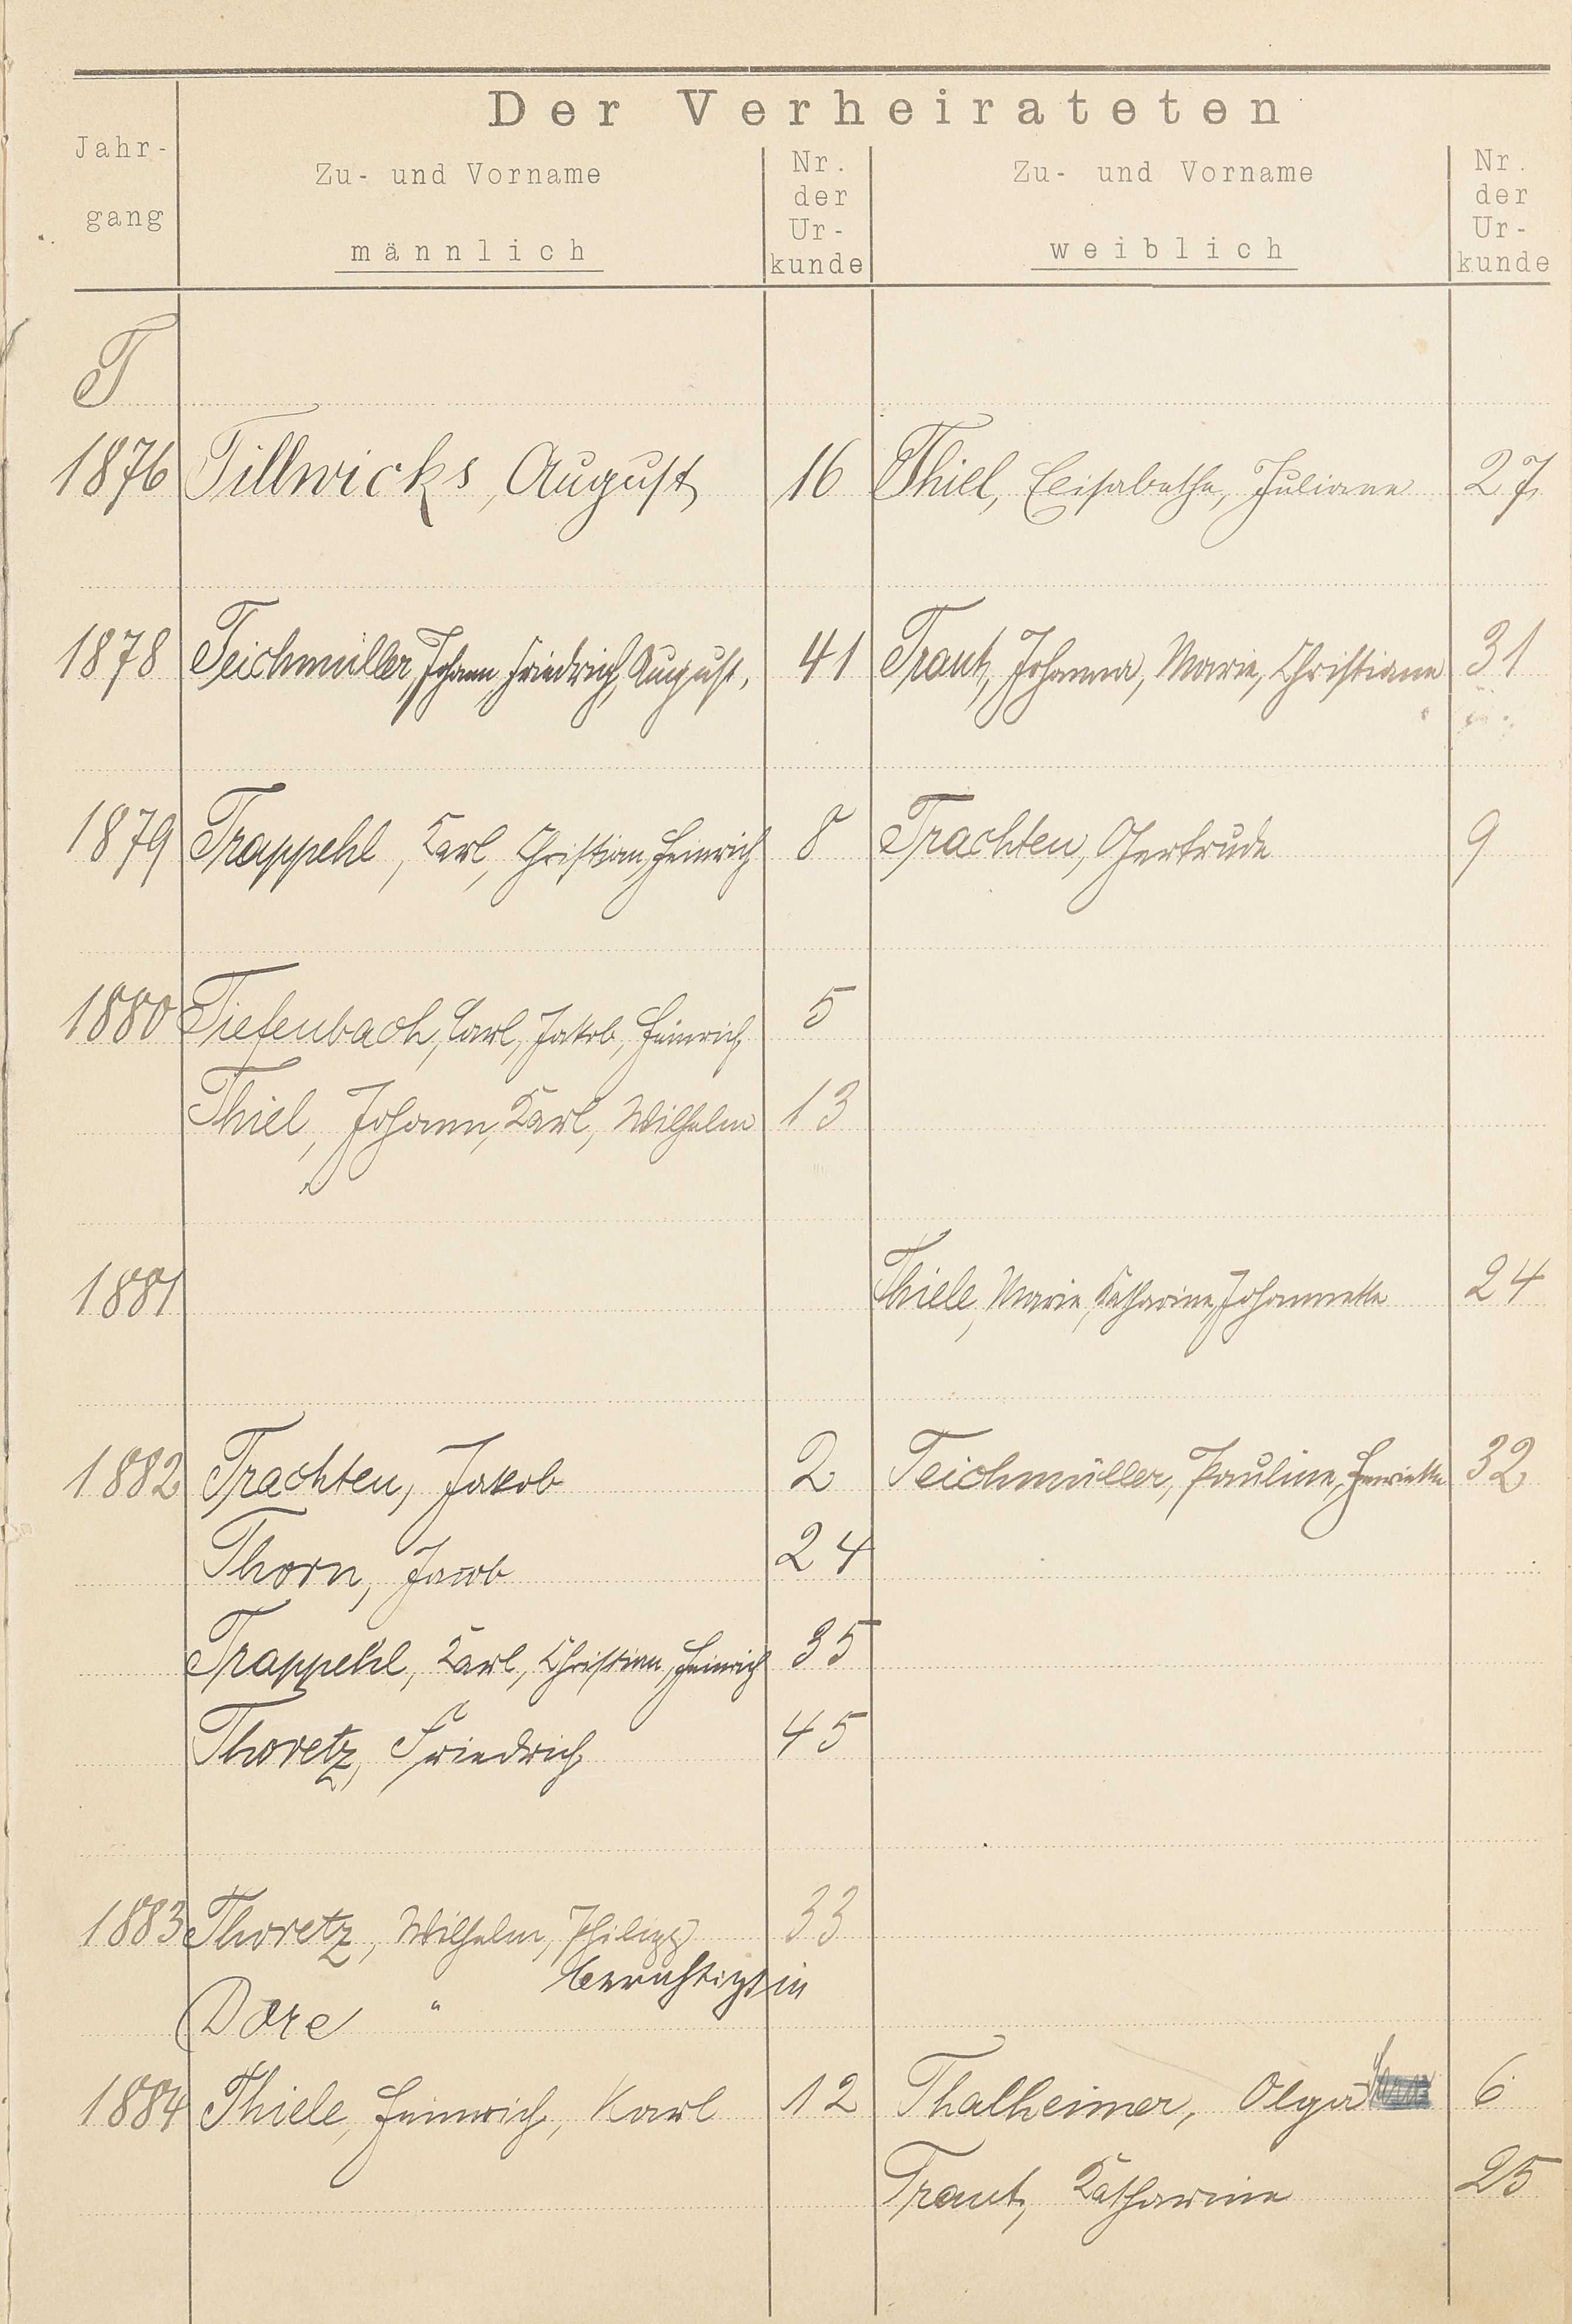 Der Verheirateten
Jahr-
gang
Zu- und Vorname
männlich
Nr.
der
Ur-
kunde
Zu- und Vorname
weiblich
Nr.
der
Ur-
kunde
T
1876 Tillwicks, August 16 Thiel, Elisabetha, Juliane 27
1878 Teichmüller, Johann, Friedrich, August, 41 Traut, Johanna, Marie, Christiane 31
1879 Trappehl, Karl, Christian, Heinrich 8 Trachten, Gertrude 9
1880 Tiefenbach, Carl, Jakob, Heinrich 5
Thiel, Johann, Karl, Wilhelm 13
1881 Thiele, Marie, Katharine, Johannette 24
1882 Trachten, Jakob 2 Teichmüller, Pauline, Henriette 32
Thorn, Jacob 24
Trappehl, Karl, Christian, Heinrich 35
Thoretz, Friedrich 45
1883 Thoretz, Wilhelm, Philipp 33
berichtigt in
Dore "
1884 Thiele, Heinrich, Karl 12 Thalheimer, Olga 6
Traut, Katharine 25